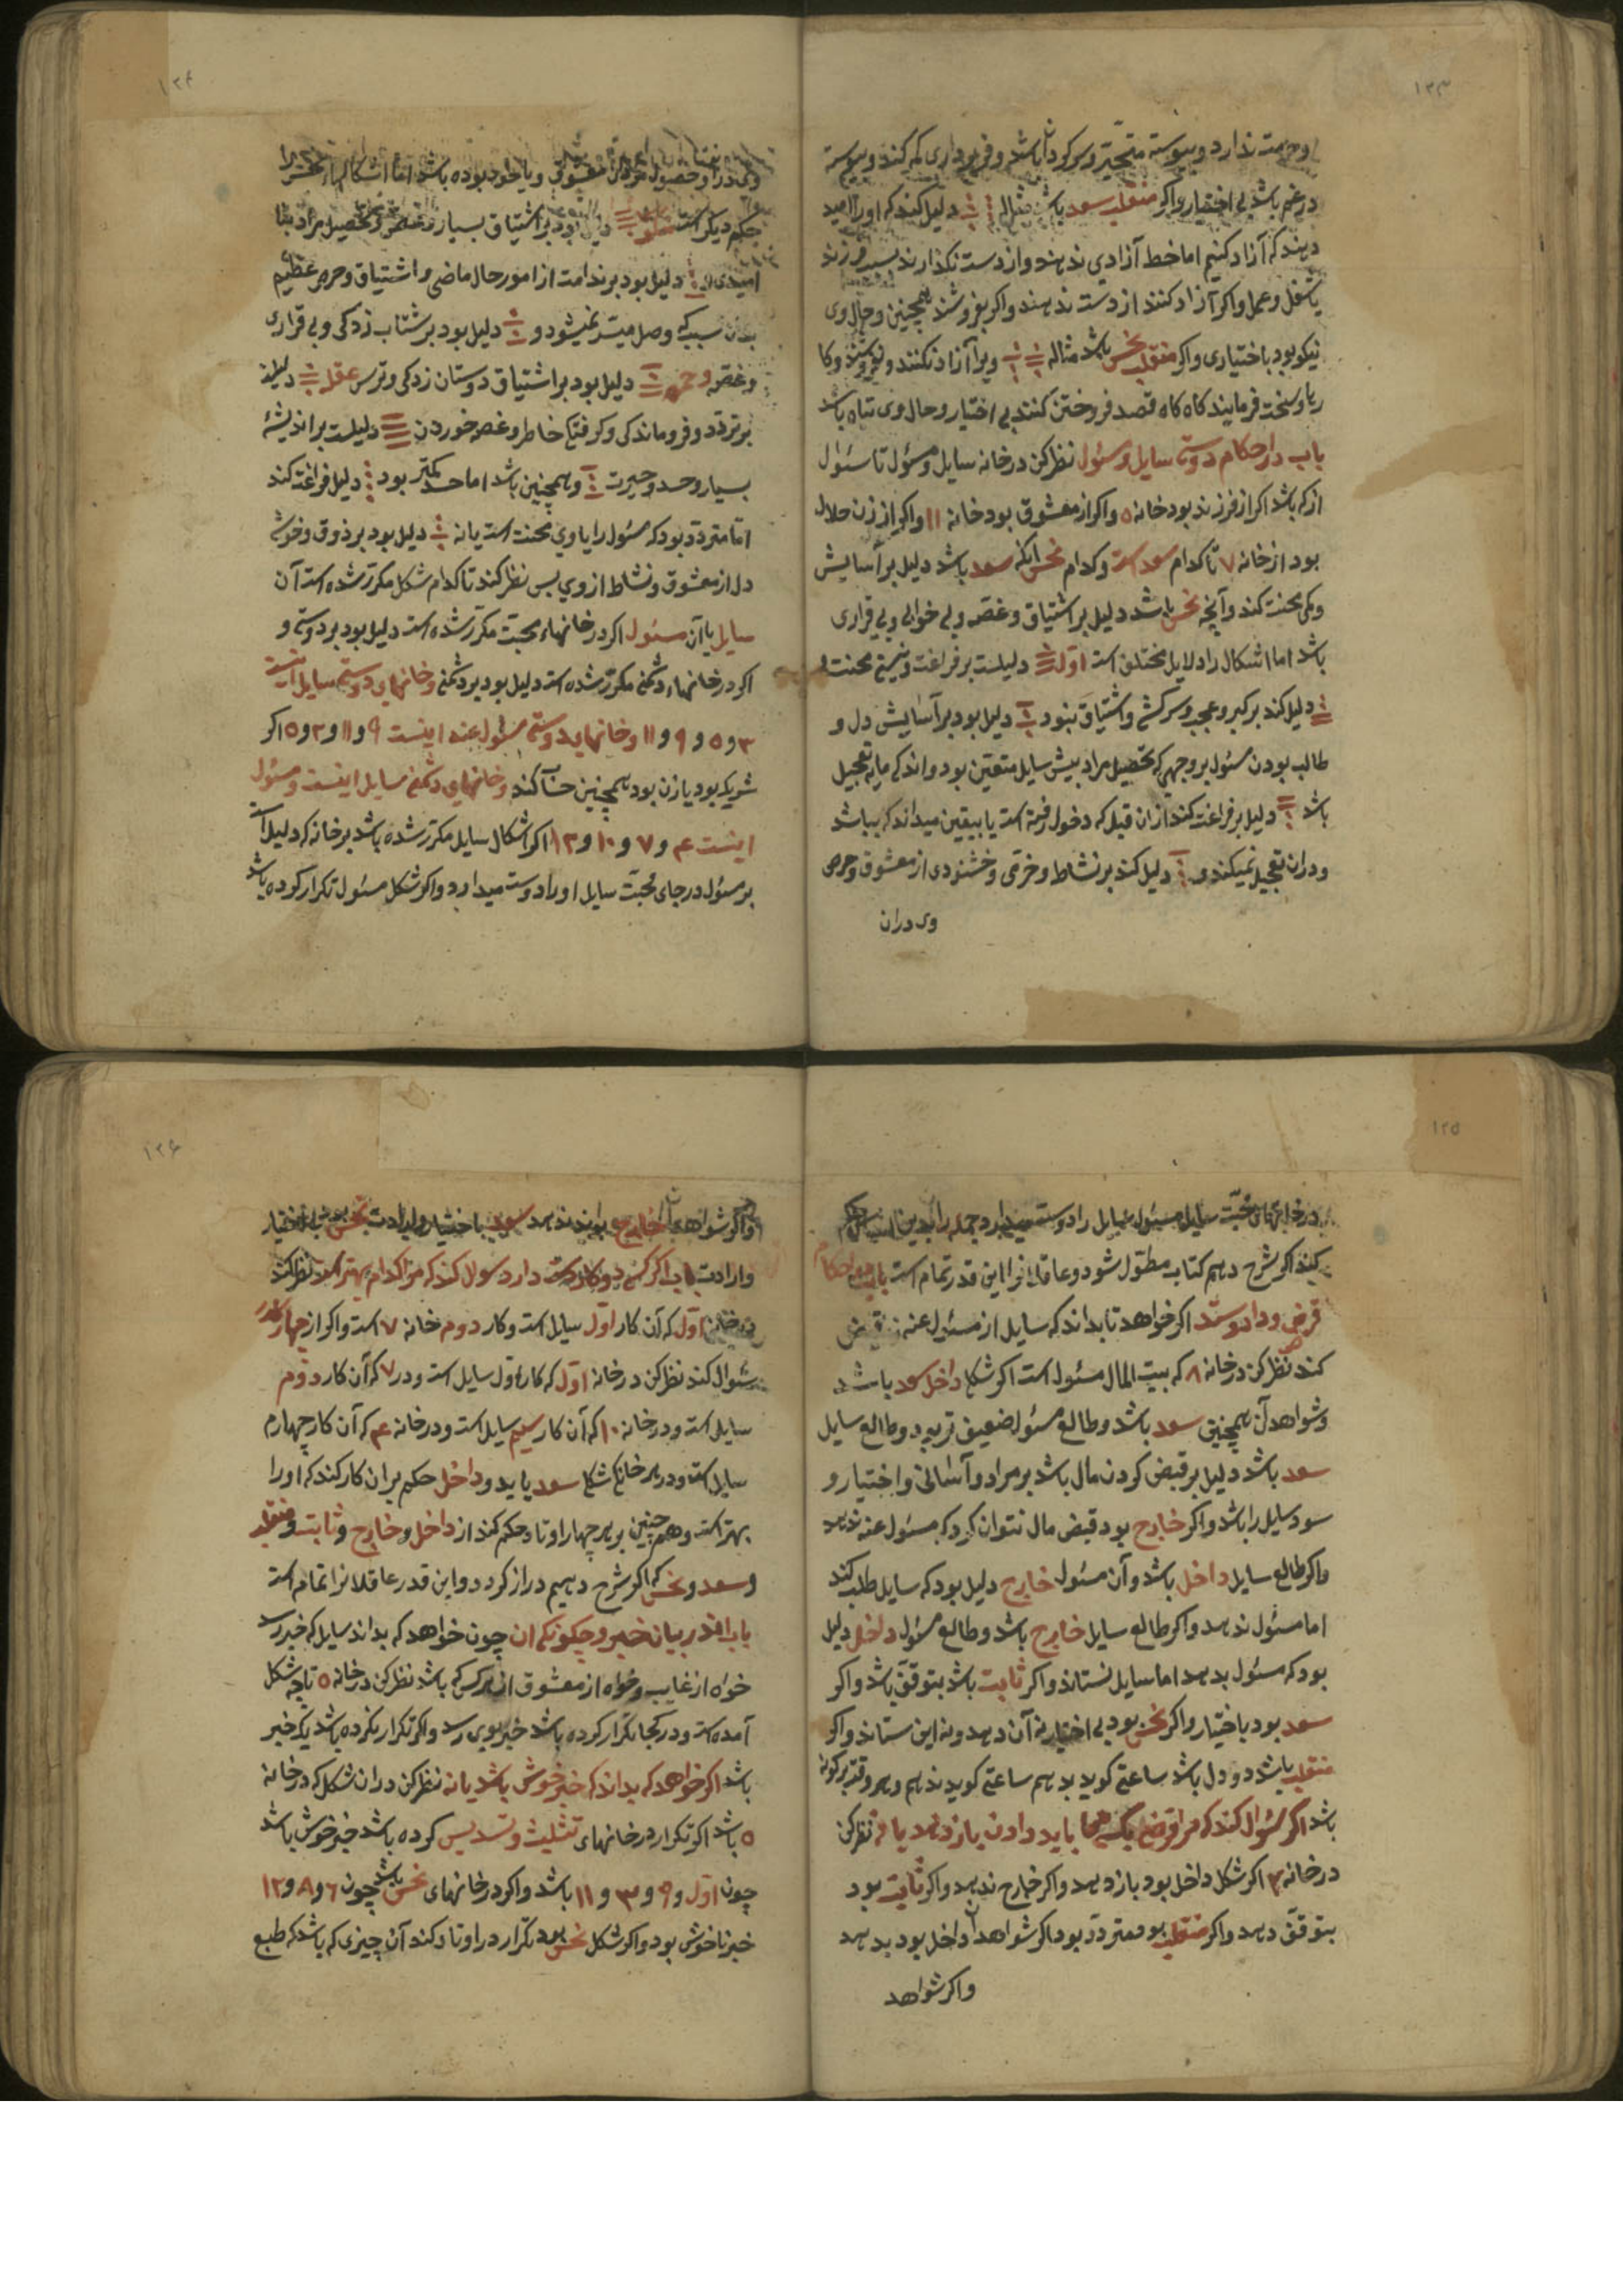 ۱۲۳
و حرمت ندارد و پیوسته متحیّر و سرکردان باشد و فرمان‌برداری که کند و پیوسته
در غم باشد بی اختیار و اکر منقلب سعد باشد مثاله دلیل کند که او را امید
دهند که آزاد کنیم اما خط آزادی ندهند و از دست نکذارند
یا شغل و عمل و اکر آزاد کنند از دست ندهند و اکر بفروشند همچنین و حال وی
نیکو بود باختیاری و اکر منقلب نحس باشد مثاله ویرا آزاد نکنند و نفروشند و کا
ریا و سخت فرمایند کاه کاه قصد فروختن کنند بی اختیار و حال وی تباه باشد
باب در احکام دوستی سایل و مسئول نظر کن در خانه سایل و مسئول تا سئوال
از که باشد اکر از فرزند بود خانه ۵ و اکر از معشوق بود خانه ۱۱ و اکر از زن حلال
بود از خانه ۷ تا کدام سعد است و کدام نحس آنکه سعد باشد دلیل بر آسایش
و کمی محنت کند و آنچه نحس باشد دلیل بر اشتیاق و غصه و بی خوابی و بی قراری
باشد اما اشکال را دلایل مختلف است اوّل دلیلست بر فراغت و نیستی محنت
دلیل کند بر کبر و عجب و سرکشی و اشتیاق نبود دلیل بود بر آسایش دل و
طالب بودن مسئول بر وجهی که تحصیل مراد بیش سایل متعیّن بود و اندک مایه تعجیل
باشد دلیل بر فراغت کند از ان قبل که دخول رفته است یا بیقین میداند که بباشد
و در ان تعجیل نمیکند و دلیل کند بر نشاط و خرّمی و خشنودی از معشوق و حرص
وی دران
۱۲۴
وی در ان و حصول معشوق و با خود بوده باشد اما اشکالهاء نحس را
حکم دیکر است دلیل بود بر اشتیاق بسیار و غصه و تحصیل مراد بنا
امیدی دلیل بود بر ندامت از امور حال ماضی و اشتیاق و حرص عظیم
بدان سبب که وصل میسّر نمیشود و دلیل بود بر شتاب زدکی و بی قراری
و غصه و حمره دلیل بود بر اشتیاق دوستان زدکی و ترس عقله دلیلند
بر تردّد و فروماندکی و کرفتکی خاطر و غصه خوردن دلیلست بر اندیشهٔ
بسیار و حسد و حیرت و همچنین باشد اما حسد کمتر بود دلیل فراغت کند
امّا متردّد بود که مسئول را با وی محنت است یا نه دلیل بود بر ذوق و خوشی
دل از معشوق و نشاط از وی بس نظر کند تا کدام شکل مکرّر شده است آن
سایل یا آن مسئول اکر در خانهاء محبّت مکرّر شده است دلیل بود بر دوستی و
اکر در خانهاء دشمنی مکرّر شده است دلیل بود بر دشمنی و خانهای دوستی سایل اینست
۳ و ۵ و ۹ و ۱۱ و خانهای دوستی مسئول عنه اینست ۹ و ۱۱ و ۳ و ۵ اکر
شریک بود یا زن بود همچنین حساب کند و خانهای دشمنی سایل اینست و مسئول
اینست ۴ و ۷ و ۱۰ و ۱۲ اکر اشکال سایل مکرّر شده باشد بر خانه که دلیل است
بر مسئول در جای محبّت سایل او را دوست میدارد و اکر شکل مسئول تکرار کرده باشد
۱۲۵
در خانهای محبّت سایل مسئول سایل را دوست میدارد و جمله را بدین قیاس حکم
کند اکر شرح دهم کتاب مطوّل شود و عاقلانرا این قدر تمام است باب در احکام
قرض و داد و ستد اکر خواهد تا بداند که سایل از مسئول عنه قبض
کند نظر کن در خانه ۸ که بیت المال مسئول است اکر شکل داخل سعد باشد
و شواهد آن همچنین سعد باشد و طالع مسئول ضعیف تر بود و طالع سایل
سعد باشد دلیل بر قبض کردن مال باشد بر مراد و آسانی و اختیار و
سود سایل را باشد و اکر خارج بود قبض مال نتوان کرد که مسئول عنه ندهد
و اکر طالع سایل داخل باشد و آن مسئول خارج دلیل بود که سایل طلب کند
اما مسئول ندهد و اکر طالع سایل خارج باشد و طالع مسئول داخل دلیل
بود که مسئول بدهد اما سایل نستاند و اکر ثابت باشد بتوقّف باشد و اکر
سعد بود باختیار و اکر نحس بود بی اختیار نه آن دهد و نه این ستاند و اکر
منقلب باشد دو دل باشد ساعتی کوید بدهم ساعتی کوید ندهم و هر وقتی بر کونهٔ
باشد اکر سئوال کند که مرا قرض بکسی می باید دادن باز دهد یا نه نظر کن
در خانه ۳ اکر شکل داخل بود باز دهد و اکر خارج ندهد و اکر ثابت بود
بتوقّف دهد و اکر منقلب بود متردّد بود اکر شواهد آن داخل بود بدهد
و اکر شواهد
۱۲۶
و اکر شواهد آن خارج بود ندهد سعد باختیار و ارادت نحس بی اختیار
و ارادت باب اکر کسی دو کار در دست دارد سوال کند که مرا کدام بهتر است نظر کند
در خانه اوّل که آن کار اوّل سایل است و کار دوم خانه ۷ است و اکر از چهار کار
سئوال کند نظر کن در خانه اوّل که کار اوّل سایل است و در ۷ که آن کار دوّم
سایل است و در خانه ۱۰ که آن کار سیم سایل است و در خانه ۴ که آن کار چهارم
سایل است و در هر خانهٔ شکل سعد یابد و داخل حکم بر ان کار کند که او را
بهتر است و هم چنین بر هر چهار اوتاد حکم کند از داخل و خارج و ثابت و منقلب
و سعد و نحس که اکر شرح دهیم دراز کردد و این قدر عاقلانرا تمام است
باب اندر بیان خبر و چکونکی آن چون خواهد که بداند سایل که خبر رسد
خواه از غایب و خواه از معشوق از هر کس که باشد نظر کن در خانه ۵ تا چه شکل
آمده است و در کجا تکرار کرده باشد خبر بوی رسد و اکر تکرار نکرده باشد یک خبر
باشد اکر خواهد که بداند که خبر خوش باشد یا نه نظر کن در ان شکل که در خانه
۵ باشد اکر تکرار در خانهای تثلیث و تسدیس کرده باشد خبر خوش باشد
چون اوّل و ۹ و ۳ و ۱۱ باشد و اکر در خانهای نحس باشد چون ۶ و ۸ و ۱۲
خبر ناخوش بود و اکر شکل نحس بود تکرار در اوتاد کند آن چیزی که باشد که طبع